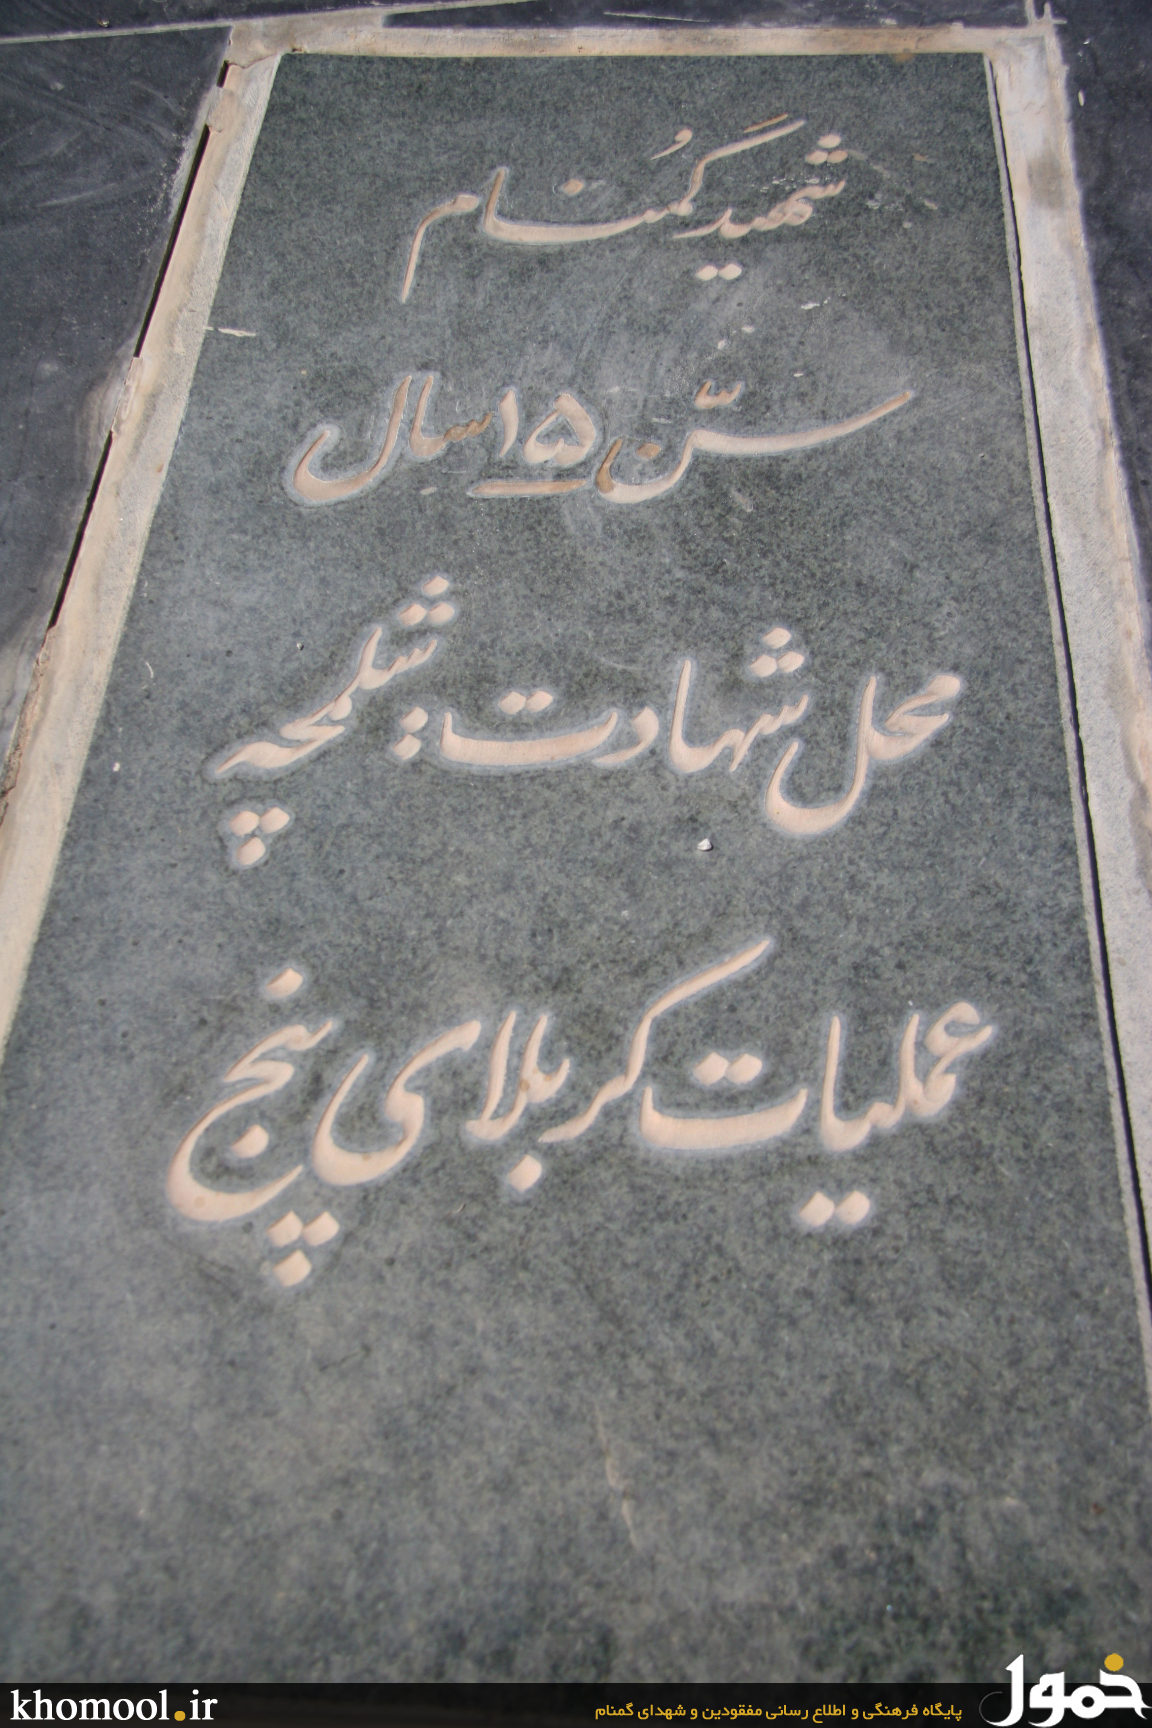 شهید گُمنام
سنّ ۱۵ سال
محل شهادت شلمچه
عملیات کربلای پنج
khomool.ir
پایگاه فرهنگی و اطلاع رسانی مفقودین و شهدای گمنام
خمول